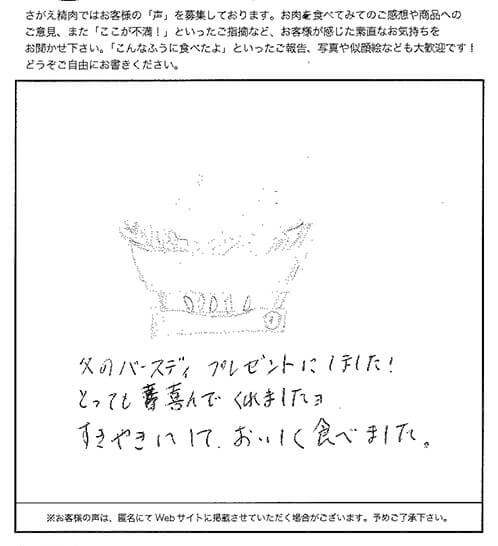 さがえ精肉ではお客様の「声」を募集しております。お肉を食べてみてのご感想や商品への
ご意見、また「ここが不満！」といったご指摘など、お客様が感じた素直なお気持ちを
お聞かせ下さい。「こんなふうに食べたよ」といったご報告、写真や似顔絵なども大歓迎です！
どうぞご自由にお書きください。
父のバースディ プレゼントにしました！
とっても喜んでくれましたヨ
すきやきにして、おいしく食べました。
※お客様の声は、匿名にてWebサイトに掲載させていただく場合がございます。予めご了承下さい。